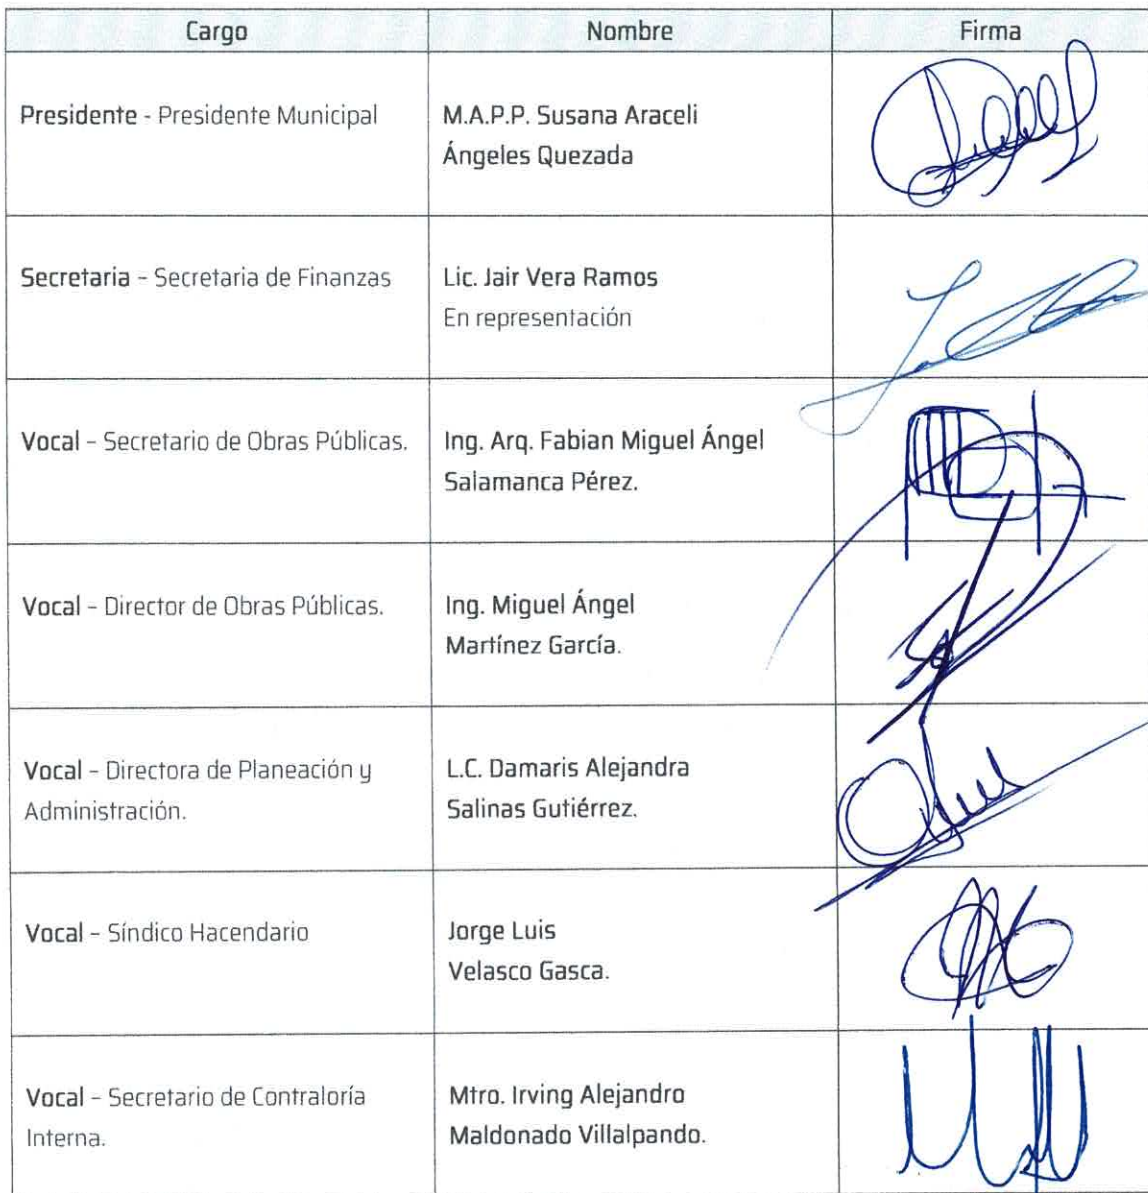 Cargo Nombre Firma
Presidente - Presidente Municipal
M.A.P.P. Susana Araceli
Ángeles Quezada
Secretaria – Secretaria de Finanzas
Lic. Jair Vera Ramos
En representación
Vocal – Secretario de Obras Públicas.
Ing. Arq. Fabian Miguel Ángel
Salamanca Pérez.
Vocal – Director de Obras Públicas.
Ing. Miguel Ángel
Martínez García.
Vocal – Directora de Planeación y
Administración.
L.C. Damaris Alejandra
Salinas Gutiérrez.
Vocal – Síndico Hacendario
Jorge Luis
Velasco Gasca.
Vocal – Secretario de Contraloría
Interna.
Mtro. Irving Alejandro
Maldonado Villalpando.